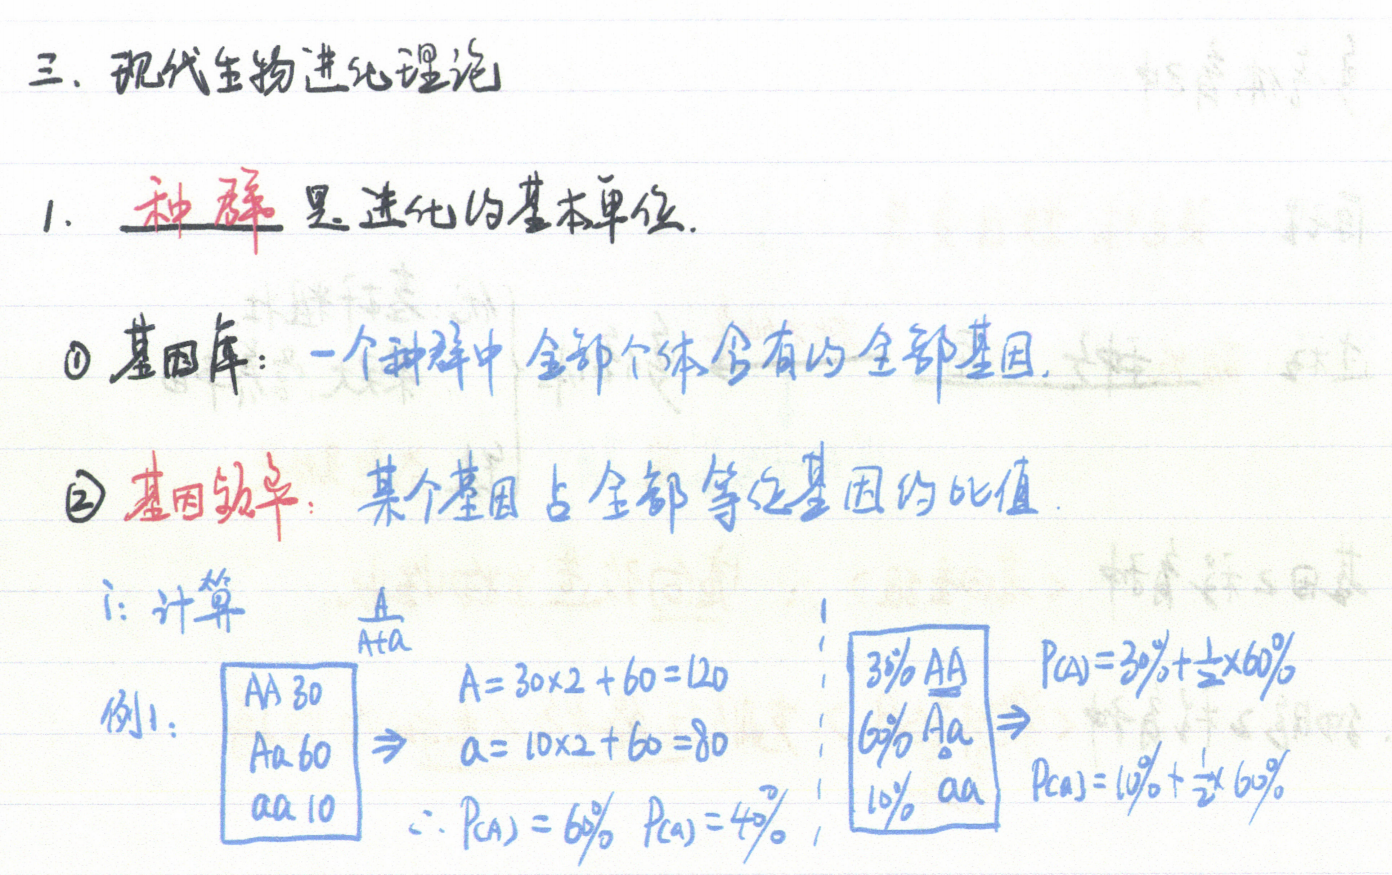 三、现代生物进化理论
1. 种群 是进化的基本单位.
① 基因库: 一个种群中全部个体含有的全部基因.
② 基因频率: 某个基因占全部等位基因的比值.
i: 计算
A/A+a
例1:
AA 30
Aa 60
aa 10
⇒
A=30×2+60=120
a=10×2+60=80
∴ P(A)=60% P(a)=40%
30% AA
60% Aa
10% aa
⇒
P(A)=30%+1/2×60%
P(a)=10%+1/2×60%